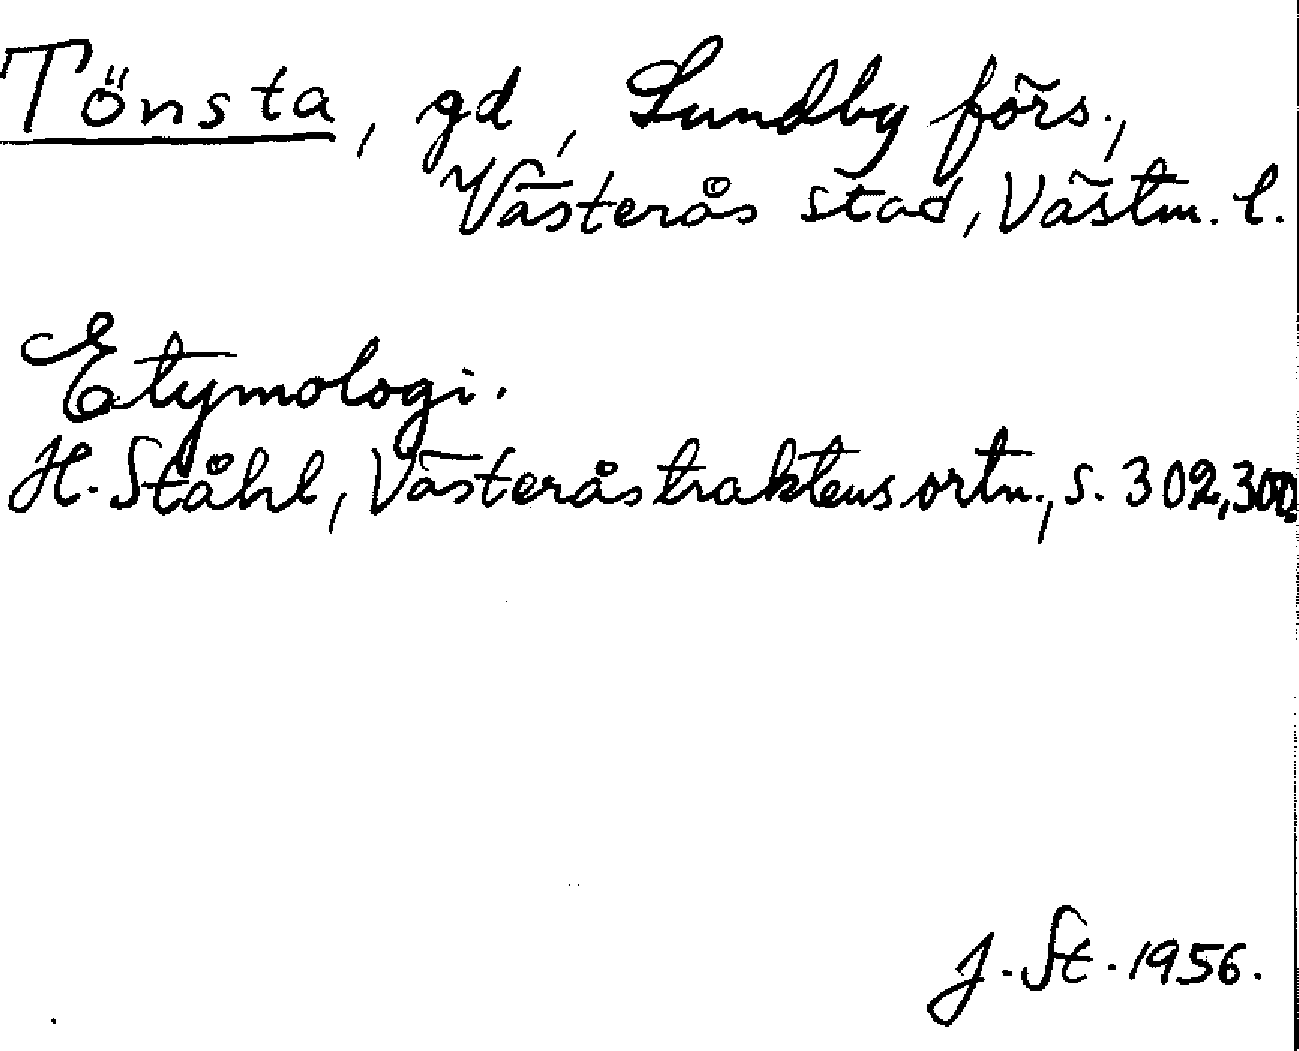 Tönsta, gd, Lundby förs.,
Västerås stad, Västm. l.
Etymologi.
H. Ståhl, Västeråstraktens ortn., s. 302, 300.
J. St. 1956.